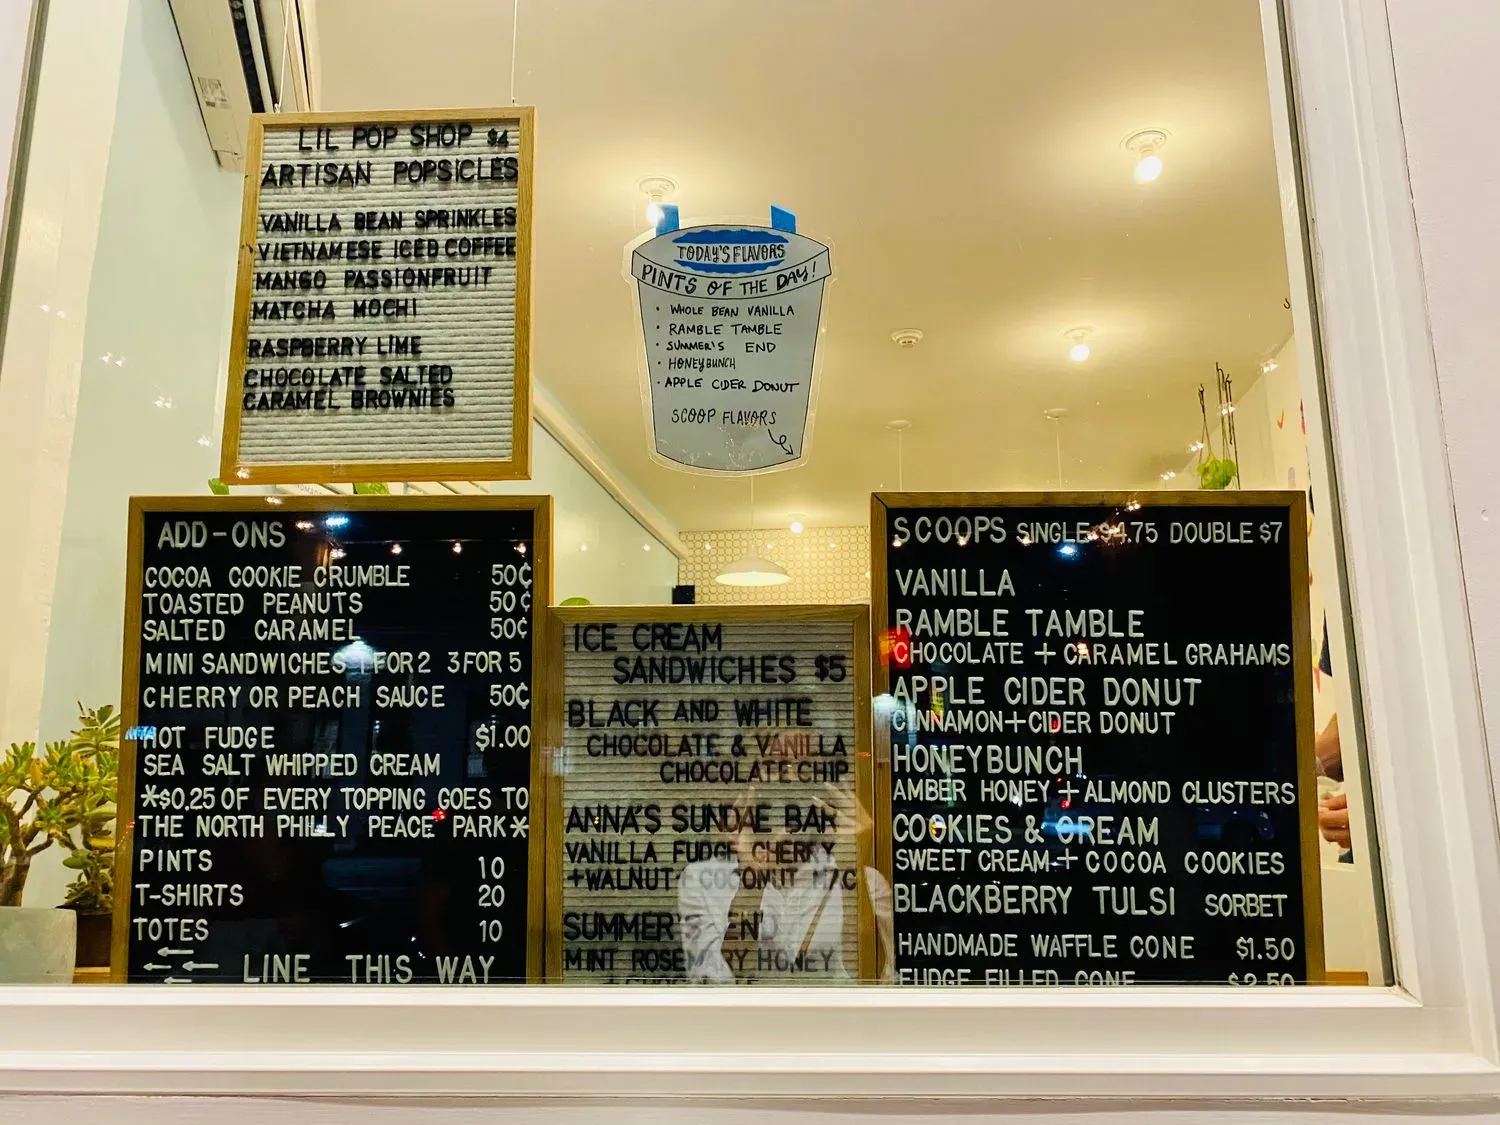 LIL POP SHOP $4
ARTISAN POPSICLES
VANILLA BEAN SPRINKLES
VIETNAMESE ICED COFFEE
MANGO PASSIONFRUIT
MATCHA MOCHI
RASPBERRY LIME
CHOCOLATE SALTED
CARAMEL BROWNIES
TODAY'S FLAVORS
PINTS OF THE DAY!
• WHOLE BEAN VANILLA
• RAMBLE TAMBLE
• SUMMER'S END
• HONEYBUNCH
• APPLE CIDER DONUT
SCOOP FLAVORS
ADD-ONS
COCOA COOKIE CRUMBLE 50¢
TOASTED PEANUTS 50¢
SALTED CARAMEL 50¢
MINI SANDWICHES 1 FOR 2 3 FOR 5
CHERRY OR PEACH SAUCE 50¢
HOT FUDGE $1.00
SEA SALT WHIPPED CREAM
*$0.25 OF EVERY TOPPING GOES TO
THE NORTH PHILLY PEACE PARK*
PINTS 10
T-SHIRTS 20
TOTES 10
LINE THIS WAY
ICE CREAM
SANDWICHES $5
BLACK AND WHITE
CHOCOLATE & VANILLA
CHOCOLATE CHIP
ANNA'S SUNDAE BAR
VANILLA FUDGE CHERRY
+WALNUT+ COCONUT M/C
SUMMER'S END
MINT ROSEMARY HONEY
SCOOPS SINGLE $4.75 DOUBLE $7
VANILLA
RAMBLE TAMBLE
CHOCOLATE + CARAMEL GRAHAMS
APPLE CIDER DONUT
CINNAMON+CIDER DONUT
HONEYBUNCH
AMBER HONEY + ALMOND CLUSTERS
COOKIES & CREAM
SWEET CREAM + COCOA COOKIES
BLACKBERRY TULSI SORBET
HANDMADE WAFFLE CONE $1.50
FUDGE FILLED CONE $2.50